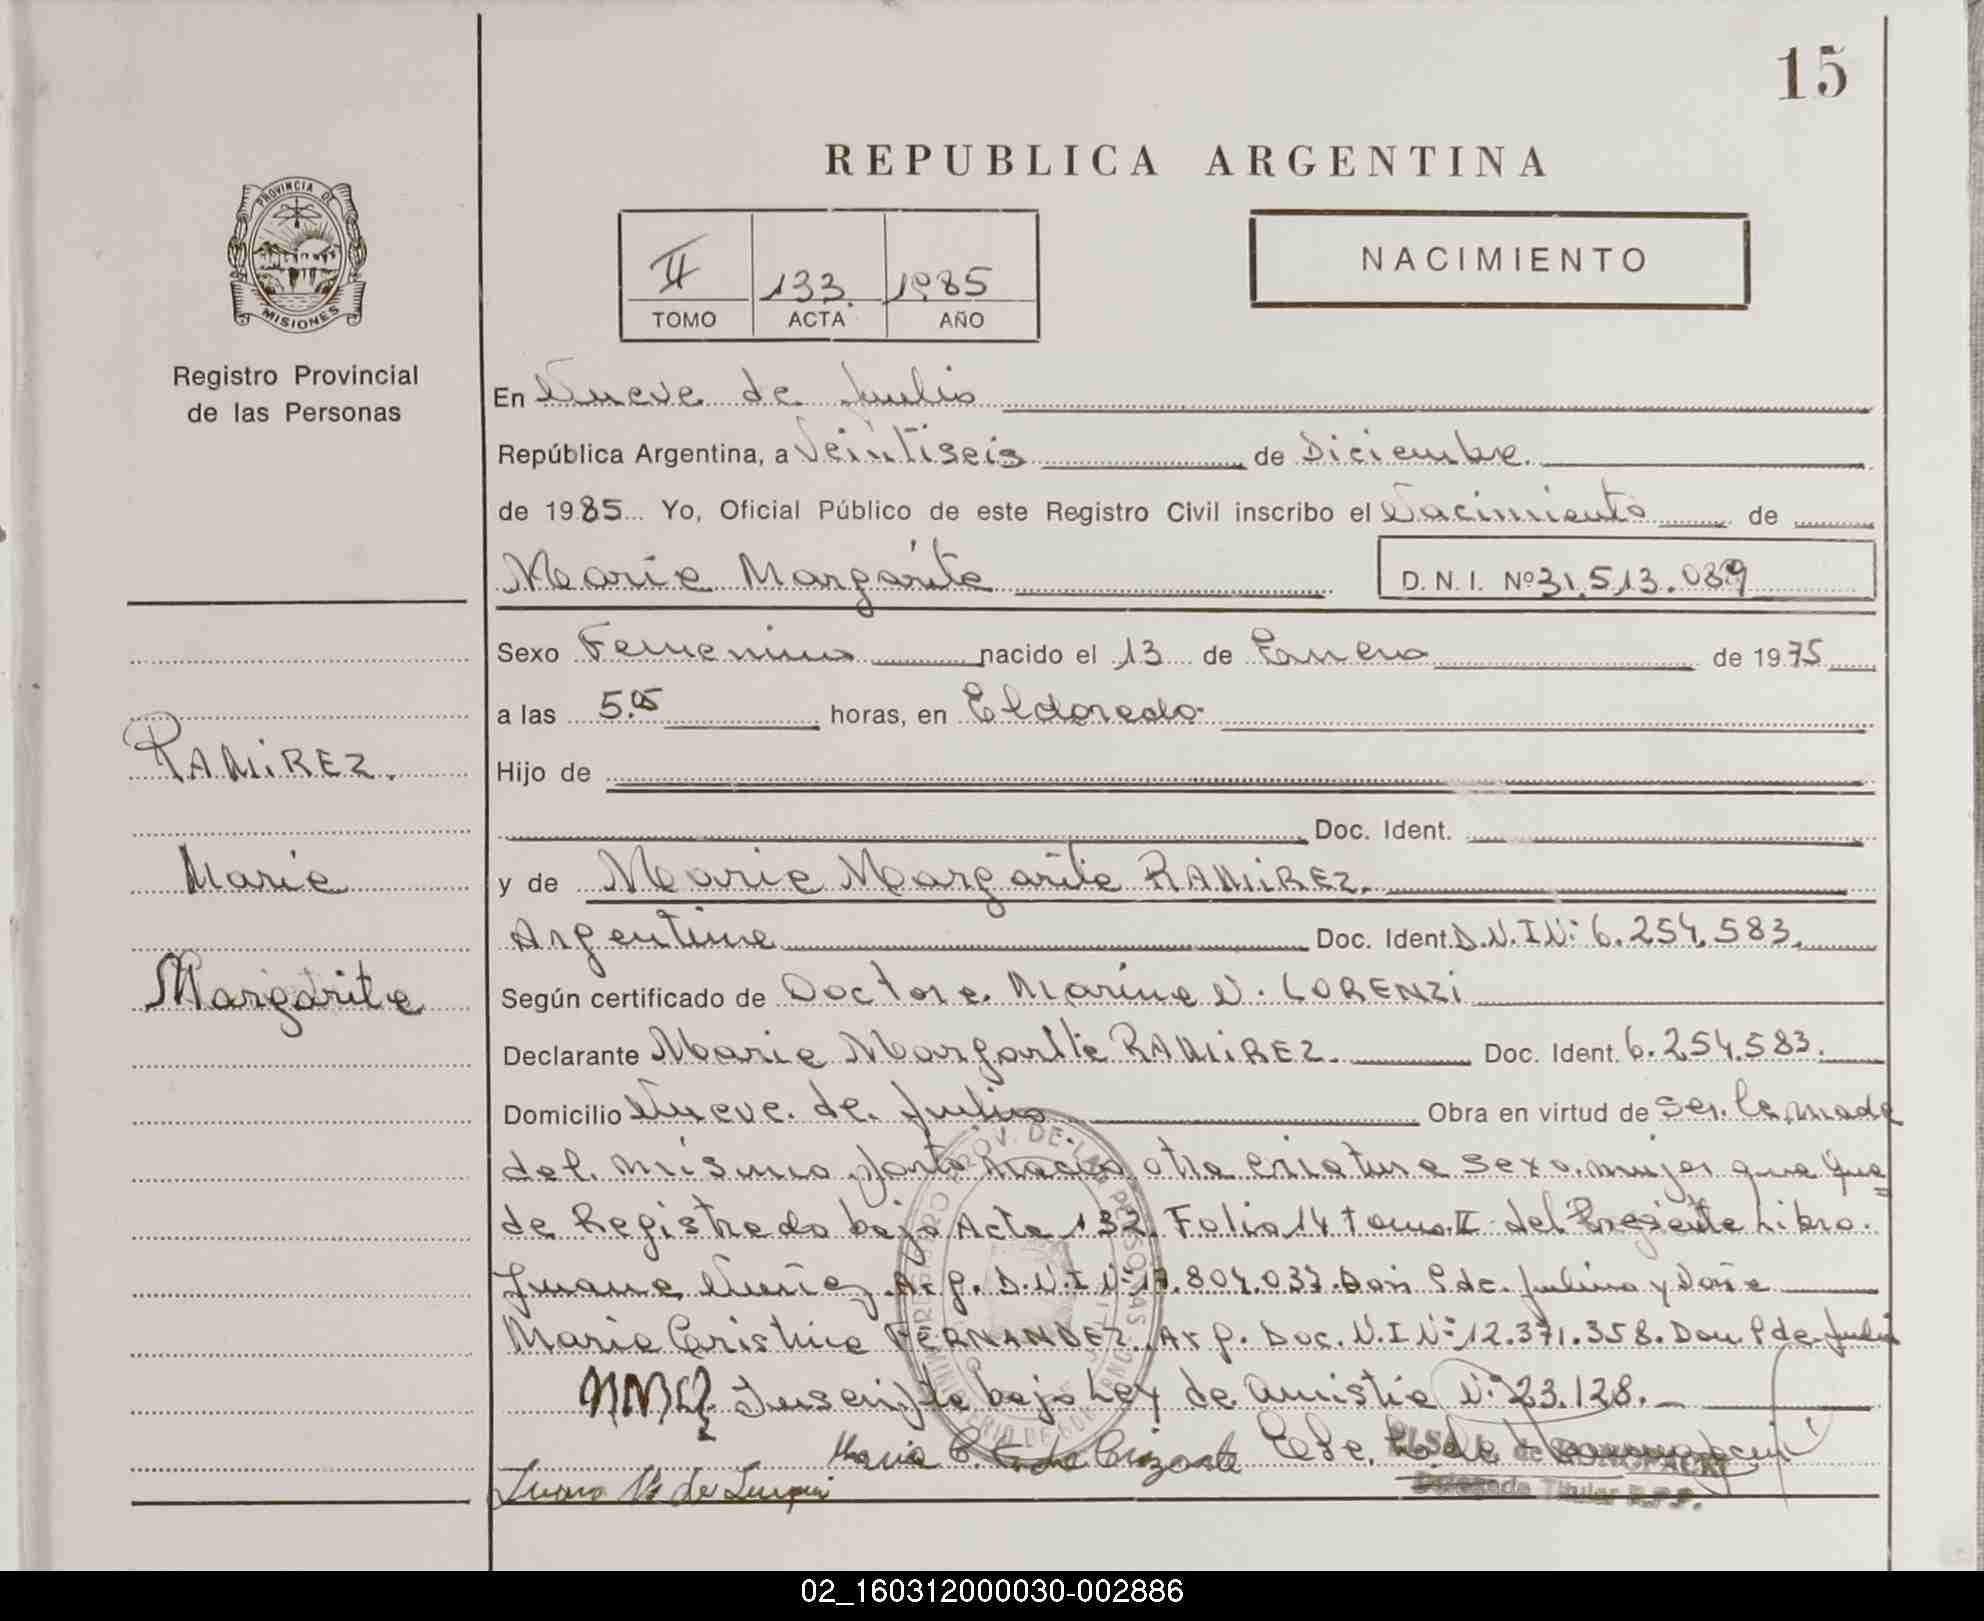 15
REPUBLICA ARGENTINA
PROVINCIA DE
MISIONES
Registro Provincial
de las Personas
II 133. 1985
TOMO ACTA AÑO
NACIMIENTO
En Nueve de Julio
República Argentina, a Veintiseis de Diciembre.
de 1985 Yo, Oficial Público de este Registro Civil inscribo el Nacimiento de
Maria Margarita D.N.I. Nº 31.513.089
Sexo Femenino nacido el 13 de Enero de 1975
a las 5.05 horas, en Eldorado
RAMIREZ. Hijo de
Doc. Ident.
Maria y de Maria Margarita RAMIREZ.
Argentina Doc. Ident. D.N.I Nº 6.254.583.
Margarita Según certificado de Doctora. Marina N. LORENZI
Declarante Maria Margarita RAMIREZ. Doc. Ident. 6.254.583.
Domicilio Nueve de Julio Obra en virtud de ser la madre
del mismo parto nacio otra criatura sexo mujer que que=
da Registrada bajo Acta 132. Folio 14 tomo II del Presente Libro.
Juana Nuñez Arg. D.N.I Nº 804.037. Dom 9 de Julio y Doña
Maria Cristina FERNANDEZ. Arg. Doc. N.I Nº 12.371.358. Dom 9 de Julio
Inscripta bajo Ley de Amistia Nº 23.128.
Maria C. de
Juana N. de
Delegada Titular R.P.P.
02_160312000030-002886